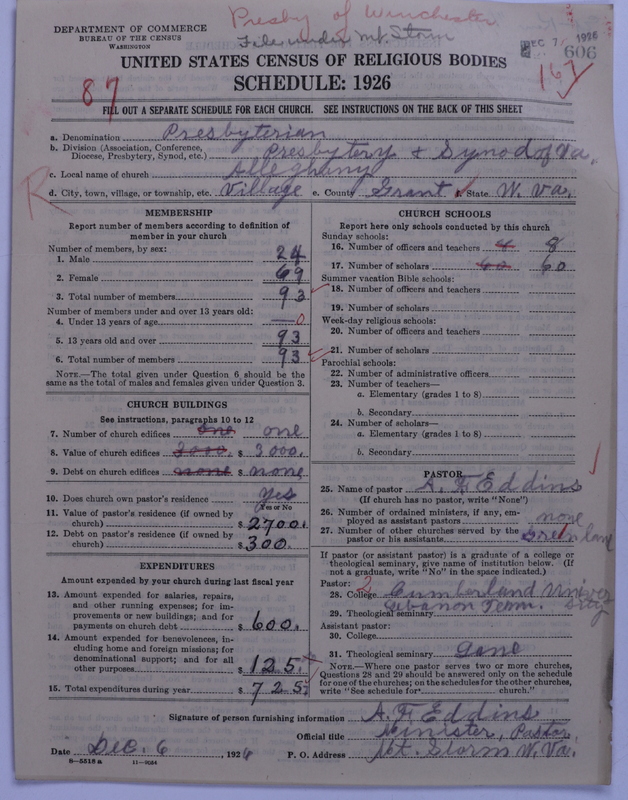 Presby of Winchester
File under Mt Storm
DEPARTMENT OF COMMERCE
BUREAU OF THE CENSUS
WASHINGTON
DEC 7 1926
606
167
UNITED STATES CENSUS OF RELIGIOUS BODIES
SCHEDULE: 1926
87
FILL OUT A SEPARATE SCHEDULE FOR EACH CHURCH. SEE INSTRUCTIONS ON THE BACK OF THIS SHEET
a. Denomination Presbyterian
b. Division (Association, Conference, Diocese, Presbytery, Synod, etc.) Presbytery & Synod of Va,
c. Local name of church Alleghany
R
d. City, town, village, or township, etc. Village e. County Grant f. State W. Va.
MEMBERSHIP
Report number of members according to definition of
member in your church
Number of members, by sex:
1. Male 24
2. Female 69
3. Total number of members 93
Number of members under and over 13 years old:
4. Under 13 years of age — 0
5. 13 years old and over 93
6. Total number of members 93
NOTE.—The total given under Question 6 should be
same as the total of males and females given under Question 3.
CHURCH BUILDINGS
See instructions, paragraphs 10 to 12
7. Number of church edifices one one
8. Value of church edifices 3000. $ 3000.
9. Debt on church edifices none $ none
10. Does church own pastor's residence yes
(Yes or No)
11. Value of pastor's residence (if owned by
church) $ 2700.
12. Debt on pastor's residence (if owned by
church) $ 300.
EXPENDITURES
Amount expended by your church during last fiscal year
13. Amount expended for salaries, repairs,
and other running expenses; for im-
provements or new buildings; and for
payments on church debt $ 600.
14. Amount expended for benevolences, in-
cluding home and foreign missions; for
denominational support; and for all
other purposes $ 125.
15. Total expenditures during year $ 725.
CHURCH SCHOOLS
Report here only schools conducted by this church
Sunday schools:
16. Number of officers and teachers 8 8
17. Number of scholars 60 60
Summer vacation Bible schools:
18. Number of officers and teachers
19. Number of scholars
Week-day religious schools:
20. Number of officers and teachers
21. Number of scholars
Parochial schools:
22. Number of administrative officers
23. Number of teachers—
a. Elementary (grades 1 to 8)
b. Secondary
24. Number of scholars—
a. Elementary (grades 1 to 8)
b. Secondary
PASTOR
25. Name of pastor A. F. Eddins
(If church has no pastor, write "None")
26. Number of ordained ministers, if any, em-
ployed as assistant pastors none
27. Number of other churches served by the
pastor or his assistants
If pastor (or assistant pastor) is a graduate of a college or
theological seminary, give name of institution below. (If
not a graduate, write "No" in the space indicated.)
Pastor:
28. College Cumberland Univer
sity
29. Theological seminary Lebanon Tenn.
Assistant pastor:
30. College
31. Theological seminary
NOTE.—Where one pastor serves two or more churches,
Questions 28 and 29 should be answered only on the schedule
for one of the churches; on the schedules for the other churches,
write "See schedule for church."
Signature of person furnishing information A. F. Eddins
Official title Minister, Pastor
Date Dec. 6, 1926 P. O. Address Mt. Storm W. Va.
8—5518 a 11—9034